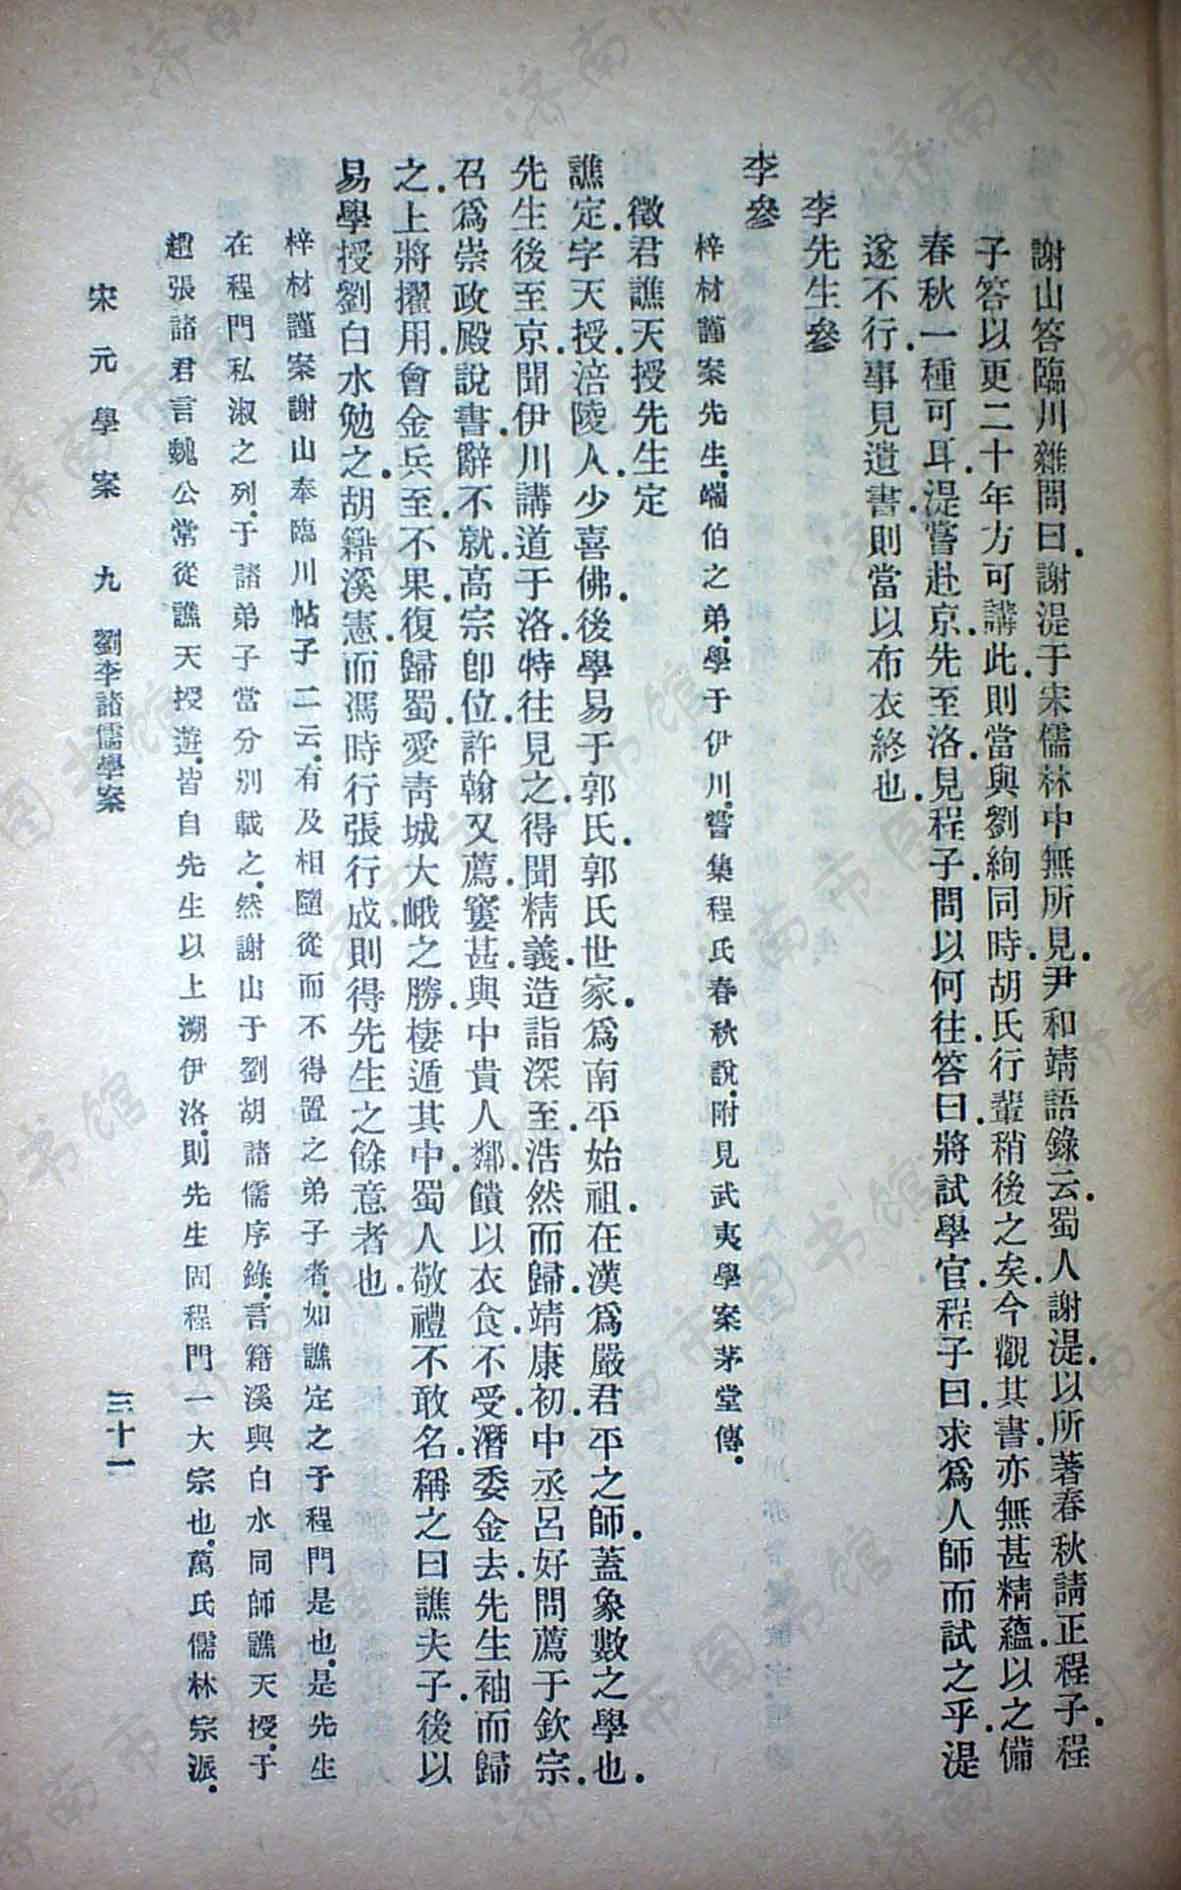 謝山答臨川雜問曰.謝湜于宋儒林中無所見.尹和靖語錄云.蜀人謝湜.以所著春秋請正程子.程
子答以更二十年方可講.此則當與劉絢同時.胡氏行輩稍後之矣.今觀其書.亦無甚精蘊.以之備
春秋一種可耳.湜嘗赴京.先至洛.見程子.問以何往.答曰.將試學官.程子曰.求爲人師而試之乎.湜
遂不行.事見遺書.則當以布衣終也.
李先生參
李參
梓材謹案先生.端伯之弟.學于伊川.嘗集程氏春秋說.附見武夷學案茅堂傳.
徵君譙天授先生定
譙定.字天授.涪陵人.少喜佛.後學易于郭氏.郭氏世家.爲南平始祖.在漢爲嚴君平之師.蓋象數之學也.
先生後至京.聞伊川講道于洛.特往見之.得聞精義.造詣深至.浩然而歸.靖康初.中丞呂好問薦于欽宗.
召爲崇政殿說書.辭不就.高宗卽位.許翰又薦.窶甚.與中貴人鄰.饋以衣食.不受.潛委金去.先生袖而歸
之.上將擢用.會金兵至.不果.復歸蜀.愛靑城大峨之勝.棲遁其中.蜀人敬禮不敢名.稱之曰譙夫子.後以
易學授劉白水勉之.胡籍溪憲.而馮時行張行成.則得先生之餘意者也.
梓材謹案謝山奉臨川帖子二云.有及相隨從而不得置之弟子者.如譙定之于程門是也.是先生
在程門私淑之列.于諸弟子當分別載之.然謝山于劉胡諸儒序錄.言籍溪與白水同師譙天授.于
趙張諸君言魏公常從譙天授遊.皆自先生以上溯伊洛.則先生固程門一大宗也.萬氏儒林宗派.
宋元學案 九 劉李諸儒學案 三十一